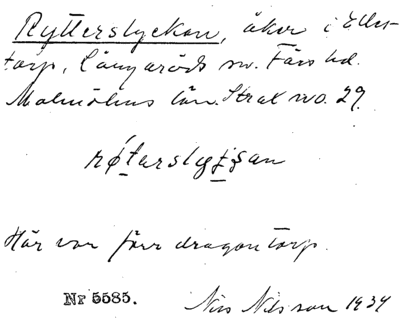 Rytterslyckan, åker i Elles-
torp, Långaröds sn. Färs hd.
Malmöhus län. Strax no. 29.
Här var förr dragontorp.
Nr 5585. Nils Nilsson 1934